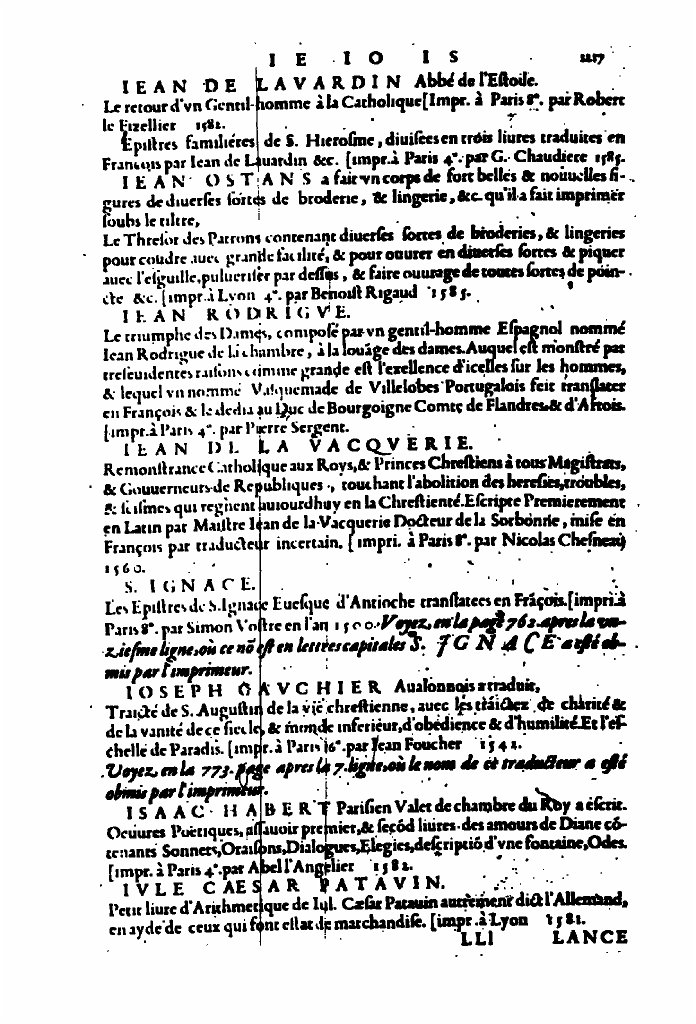 I E I O I S 1217
IEAN DE LAVARDIN Abbé de l'Estoile.
Le retour d'vn Gentil-homme à la Catholique [Impr. à Paris 8°. par Robert
le Fizellier 1582.
Epistres familiéres de S. Hierosme, diuisees en trois liures traduites en
François par Iean de Lauardin &c. [impr. à Paris 4°. par G. Chaudiere 1585.
IEAN OSTANS a fait vn corps de fort belles & nouuelles fi-
gures de diuerses sortes de broderie, & lingerie, &c. qu'il a fait imprimer
soubs le tiltre,
Le Thresor des Patrons contenant diuerses sortes de broderies, & lingeries
pour coudre auec grande facilité, & pour ouurer en diuerses sortes & piquer
auec l'esguille, pulueriser par dessus, & faire ouurage de toutes sortes de poin-
cte &c. [impr. à Lyon 4°. par Benoist Rigaud 1585.
IEAN RODRIGVE.
Le triumphe des Dames, composé par vn gentil-homme Espagnol nommé
Iean Rodrigue de la chambre, à la louãge des dames. Auquel est monstré par
treseuidentes raisons comme grande est l'exellence d'icelles sur les hommes,
& lequel vn nommé Vasquemade de Villelobes Portugalois feit translater
en François & le dedia au Duc de Bourgoigne Comte de Flandres & d'Artois.
[impr. à Paris 4°. par Pierre Sergent.
IEAN DE LA VACQVERIE.
Remonstrance Catholique aux Roys, & Princes Chrestiens à tous Magistrats,
& Gouuerneurs de Republiques, touchant l'abolition des heresies, troubles,
& scismes qui regnent auiourdhuy en la Chrestienté. Escripte Premierement
en Latin par Maistre Iean de la Vacquerie Docteur de la Sorbonne, mise en
François par traducteur incertain. [impri. à Paris 8°. par Nicolas Chesneau
1560.
S. IGNACE.
Les Epistres de S. Ignace Euesque d'Antioche translatees en Frãçois. [impri. à
Paris 8°. par Simon Vostre en l'an 1500. Voyez, en la page 762. apres la vn-
ziesme ligne, où ce nõ est en lettres capitales S. IGNACE a esté ob-
mis par l'imprimeur.
IOSEPH GAVCHIER Aualonnois a traduit,
Traicté de S. Augustin de la vie chrestienne, auec les traictez de charité &
de la vanité de ce siecle, & monde inferieur, d'obedience & d'humilité. Et l'es-
chelle de Paradis. [impr. à Paris 16°. par Iean Foucher 1542.
Voyez, en la 773. page apres la 7. ligne, où le nom de ce traducteur a esté
obmis par l'imprimeur.
ISAAC HABERT Parisien Valet de chambre du Roy a escrit.
Oeuures Poëtiques, assauoir premier, & secõd liures des amours de Diane cõ-
tenants Sonnets, Oraisons, Dialogues, Elegies, descriptiõ d'vne fontaine, Odes.
[impr. à Paris 4°. par Abel l'Angelier 1582.
IVLE CAESAR PATAVIN.
Petit liure d'Arithmetique de Iul. Cæsar Patauin autrement dict l'Allemand,
en ayde de ceux qui font estat de marchandise. [impr. à Lyon 1581.
LLl LANCE